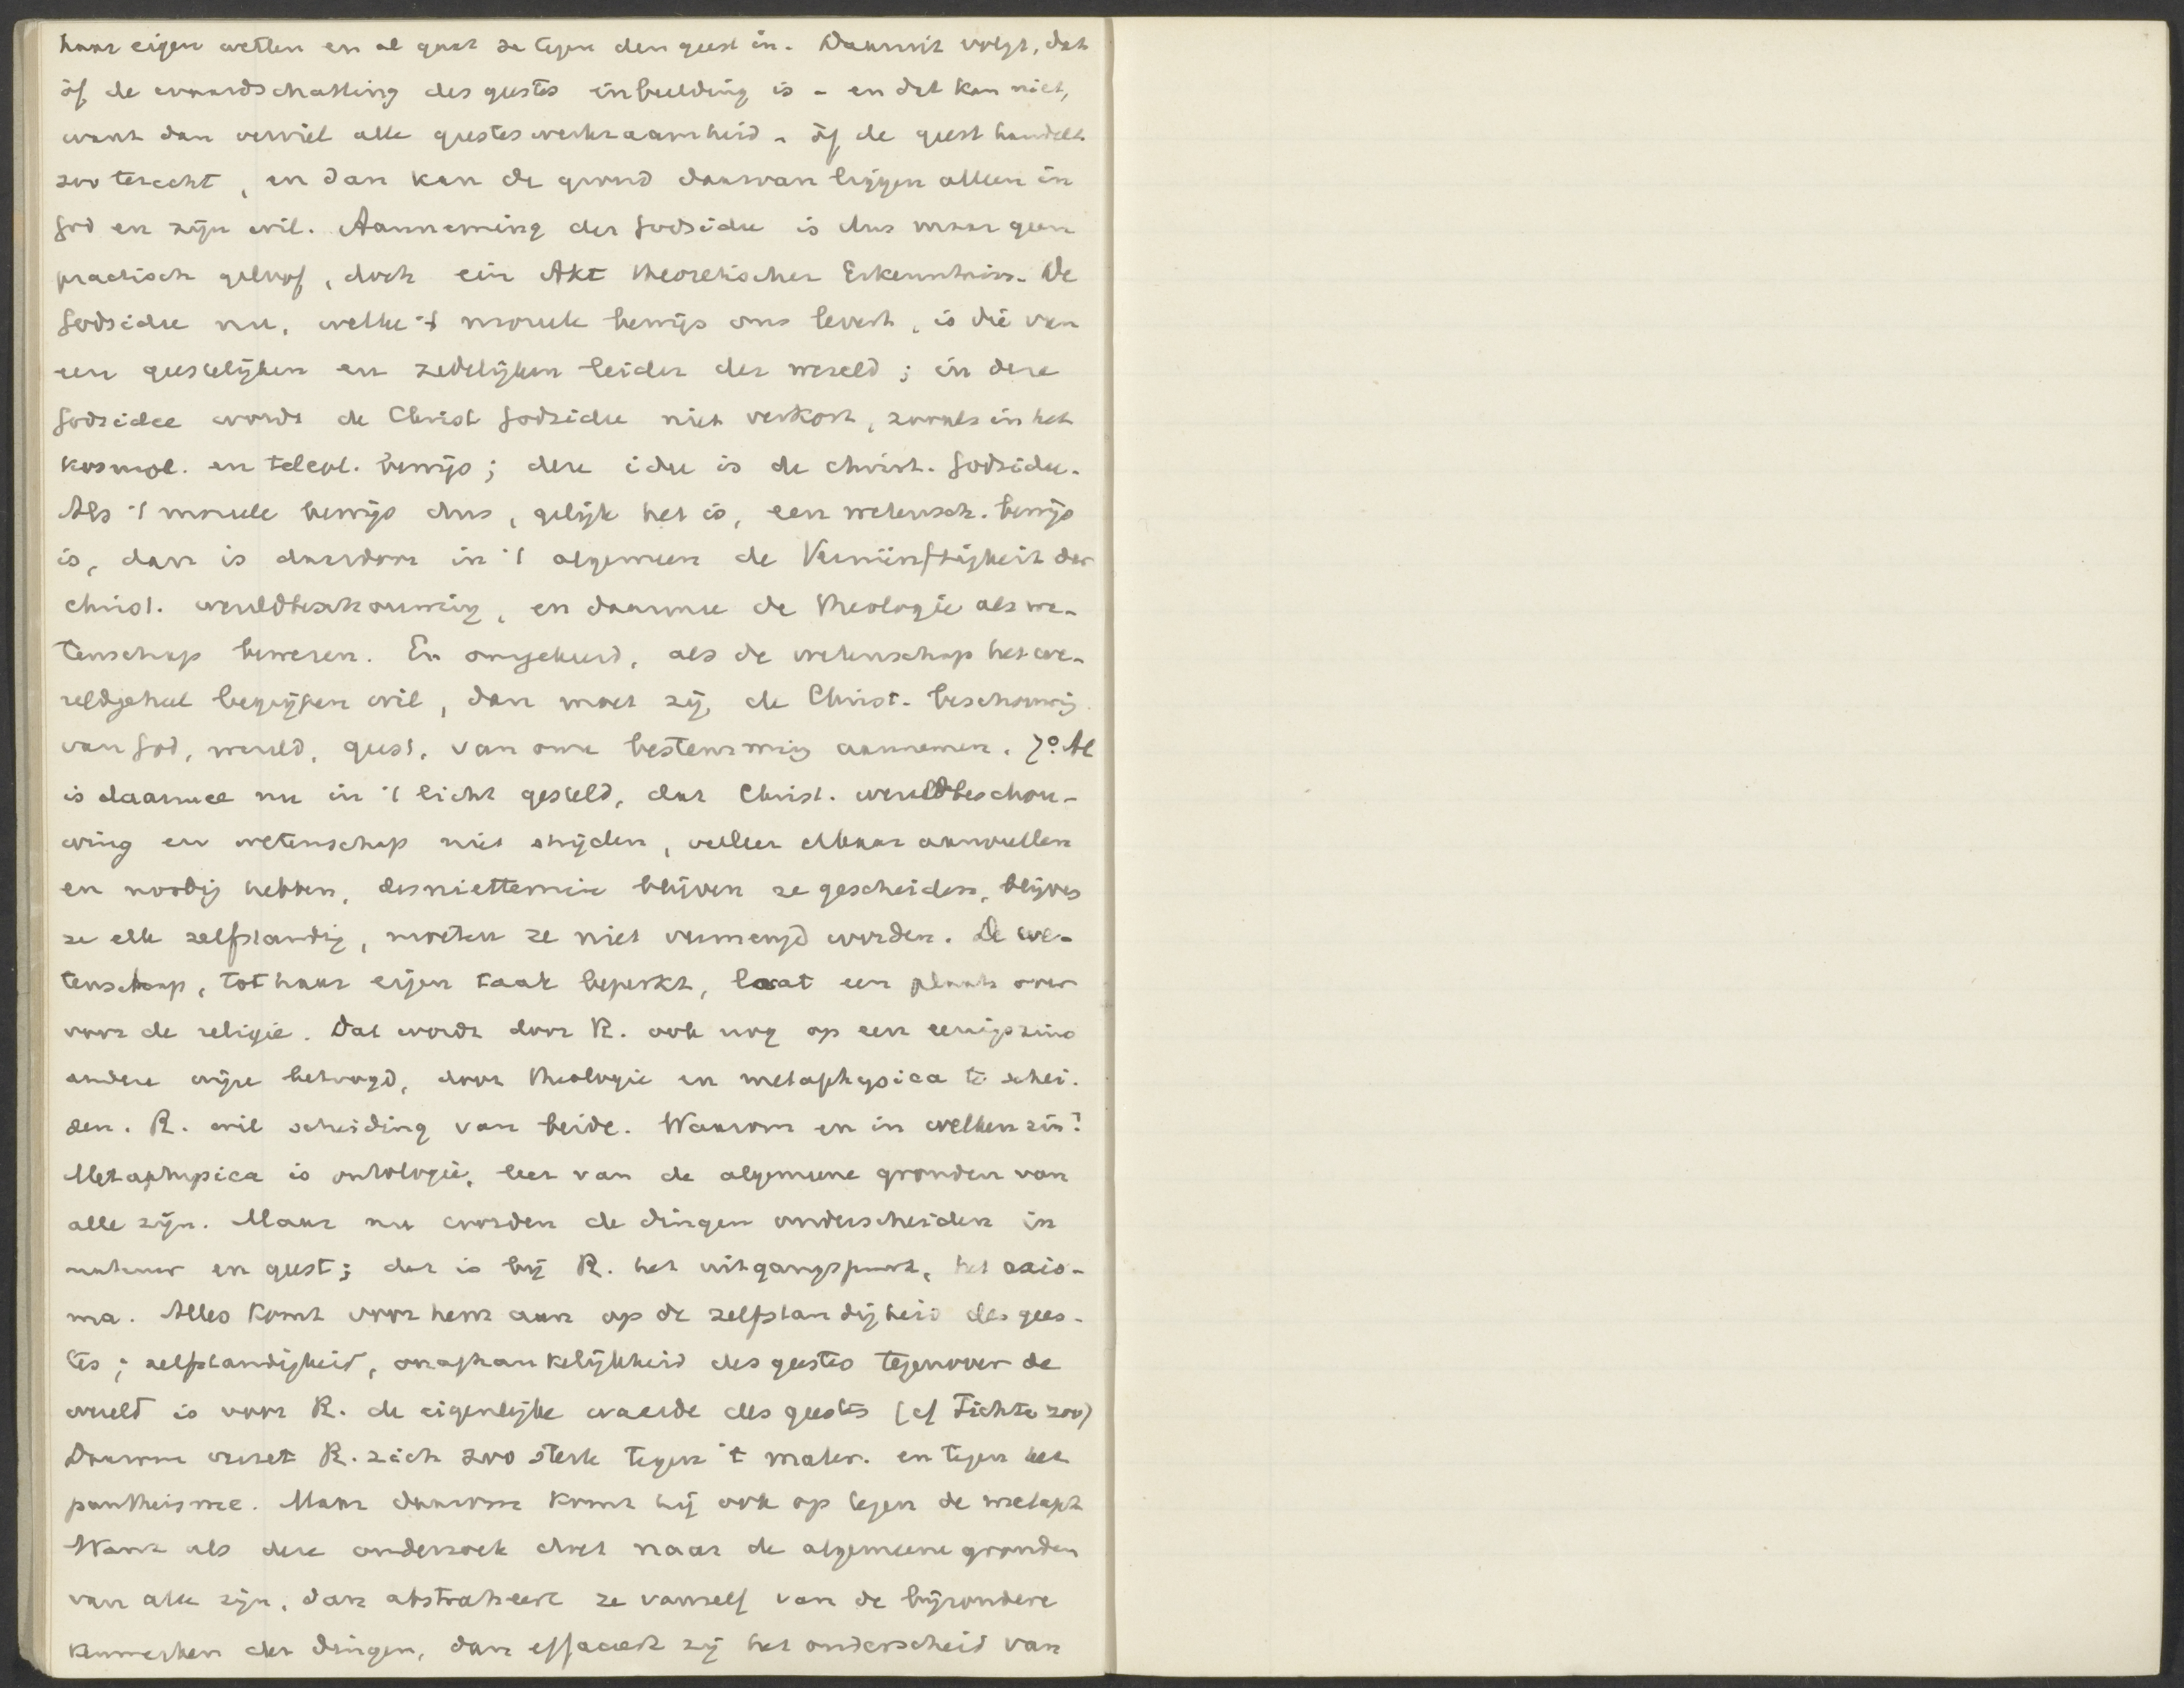 haar eigen wetten en al gaat ze tegen den geest in. Daaruit volgt, dat
òf de waardschatting des geestes inbeelding is - en dat kan niet,
want dan verviel alle geesteswerkzaamheid - òf de geest handelt
zoo terecht, en dan kan de grond daarvan liggen alleen in
God en zijn wil. Aanneming der Godsidee is dus maar geen
practisch geloof, doch ein Akt theoretischer Erkenntniss. De
Godsidee nu, welke 't moreele bewijs ons levert, is die van
een geestelijken en zedelijken leider der wereld; in deze
Godsidee wordt de Christ Godsidee niet verkort, zooals in het
kosmol. en teleol. bewijs; deze idee is de christ. Godsidee.
Als 't moreele bewijs dus, gelijk het is, een wetensch. bewijs
is, dan is daardoor in 't algemeen de Vernünftigkeit der
christ. wereldbeschouwing, en daarmee de theologie als we-
tenschap bewezen. En omgekeerd, als de wetenschap het we-
reldgeheel begrijpen wil, dan moet zij de Christ. beschouwing
van God, wereld, geest, van onze bestemming aannemen. 7o. Al
is daarmee nu in 't licht gesteld, dat Christ. wereldbeschou-
wing en wetenschap niet strijden, veeleer elkaar aanvullen
en noodig hebben, desniettemin blijven ze gescheiden, blijven
ze elk zelfstandig, moeten ze niet vermengd worden. De we-
tenschap, tot haar eigen taak beperkt, laat een plaats over
voor de religie. Dat wordt door R. ook nog op een eenigszins
andere wijze betoogd, door theologie en metaphysica te schei-
den. R. wil scheiding van beide. Waarom en in welken zin?
Metaphysica is ontologie, leer van de algemeene gronden van
alle zijn. Maar nu worden de dingen onderscheiden in
natuur en geest; dat is bij R. het uitgangspunt, het axio-
ma. Alles komt voor hem aan op de zelfstandigheid des gees-
tes; zelfstandigheid, onafhankelijkheid des geestes tegenover de
wereld is voor R. de eigenlijke waarde des geestes (cf Fichte zoo)
Daarom verzet R. zich zoo sterk tegen 't mater. en tegen het
pantheisme. Maar daarom komt hij ook op tegen de metaph
Want als deze onderzoek doet naar de algemeene gronden
van alle zijn, dan abstraheert ze vanzelf van de bijzondere
kenmerken der dingen, dan effaceert zij het onderscheid van